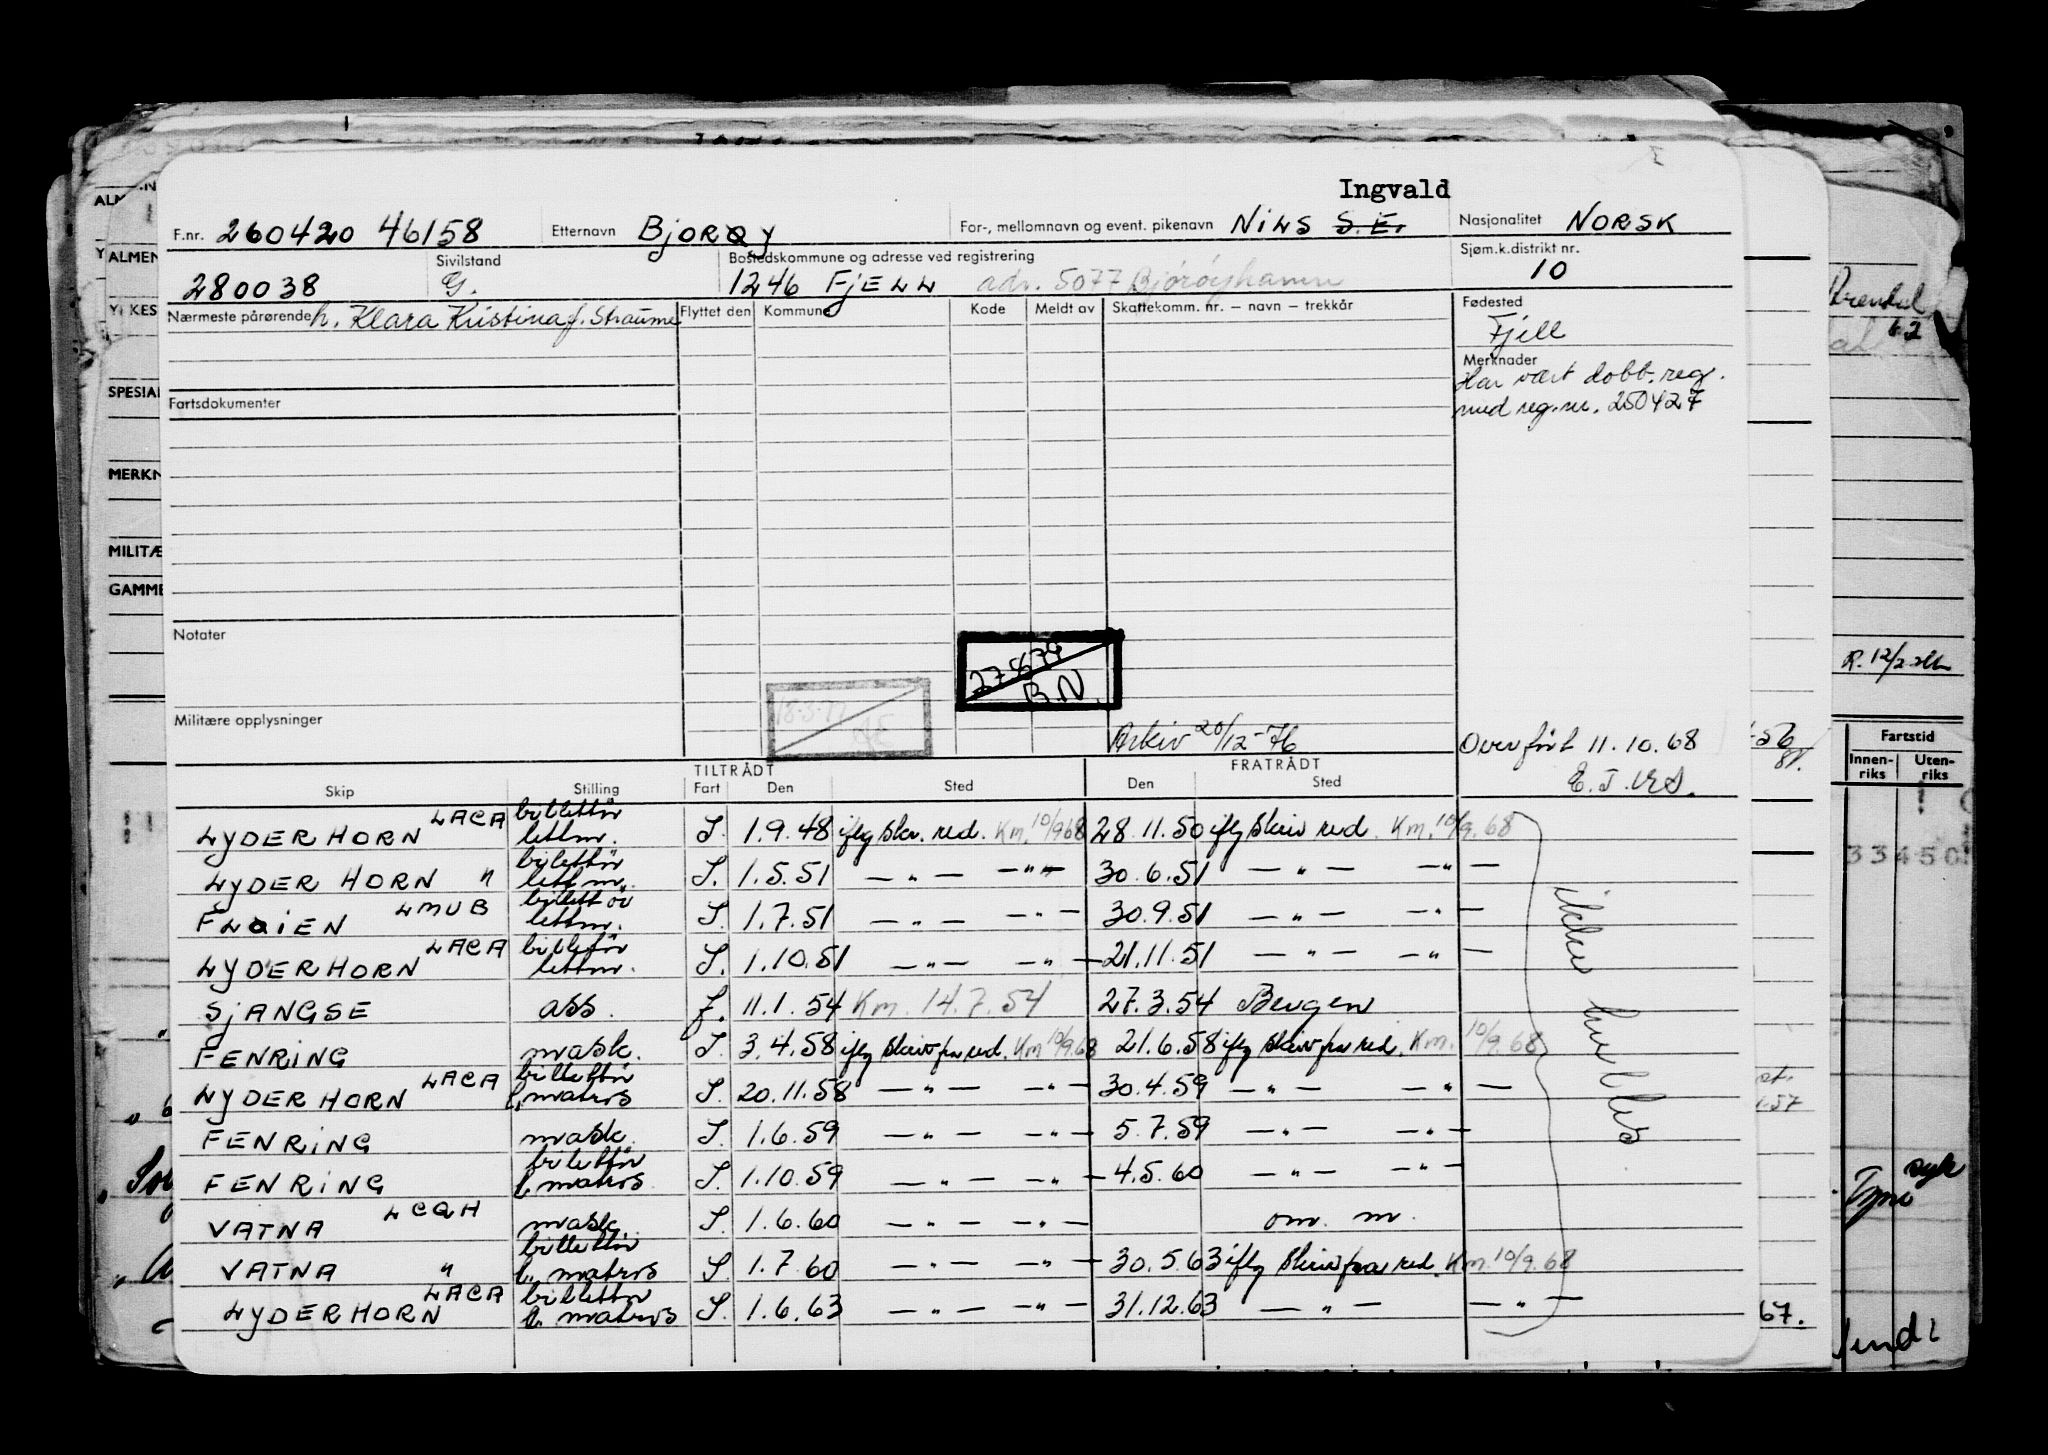 Ingvald
F.nr. 260420 46158 Etternavn BjORØy For-, mellomnavn og event. pikenavn NiLS S.E. Nasjonalitet NORSK
280038 Sivilstand G. Bostedskommune og adresse ved registrering 1246 FjELL adr. 5077 Bjørøyhamn Sjøm.k.distrikt nr. 10
Nærmeste pårørende h. Klara Kristina f. Straume Flyttet den Kommune Kode Meldt av Skattekomm. nr. – navn – trekkår Fødested
Fjell
Merknader
Har vært dobb. reg.
med reg.nr. 250427
Fartsdokumenter
Notater
27 8 79
B.N.
18.3.77
Militære opplysninger
Arkiv 20/12-76
Overført 11.10.68
TILTRÅDT FRATRÅDT
Skip Stilling Fart Den Sted Den Sted
LYDERHORN LACA billettør lettm. S. 1.9.48 iflg skr. red. Km. 10/9 68 28.11.50 iflg skriv red. Km. 10/9.68
LYDER HORN " billettør lettm. S. 1.5.51 — " — — " — 30.6.51 — " — — " —
FLØiEN LMUB billettør lettm. S. 1.7.51 — " — — " — 30.9.51 — " — — " —
LYDERHORN LACA billettør lettm. S. 1.10.51 — " — — " — 21.11.51 — " — — " —
SjANGSE ass. f. 11.1.54 Km. 14.7.54 27.3.54 Bergen
FENRiNG mask. S. 3.4.58 iflg skriv fra red. Km 10/9.68 21.6.58 iflg skriv fra red. Km. 10/9.68
LYDERHORN LACA billettør l. matros S. 20.11.58 — " — — " — 30.4.59 — " — — " —
FENRiNG mask. S. 1.6.59 — " — — " — 5.7.59 — " — — " —
FENRiNG billettør l. matros S. 1.10.59 — " — — " — 4.5.60 — " — — " —
VATNA LCQH mask. S. 1.6.60 — " — — " — om. m.
VATNA " billettør l. matros S. 1.7.60 — " — — " — 30.5.63 iflg skriv fra red. Km. 10/9.68
LYDERHORN LACA billettør l. matros S. 1.6.63 — " — — " — 31.12.63 — " — — " —
ALMEN
YRKES
SPESIAL
MERKN
MILITÆ
GAMME
Arendal
R. 12/2
Fartstid
Innen-riks Uten-riks
33450
67.